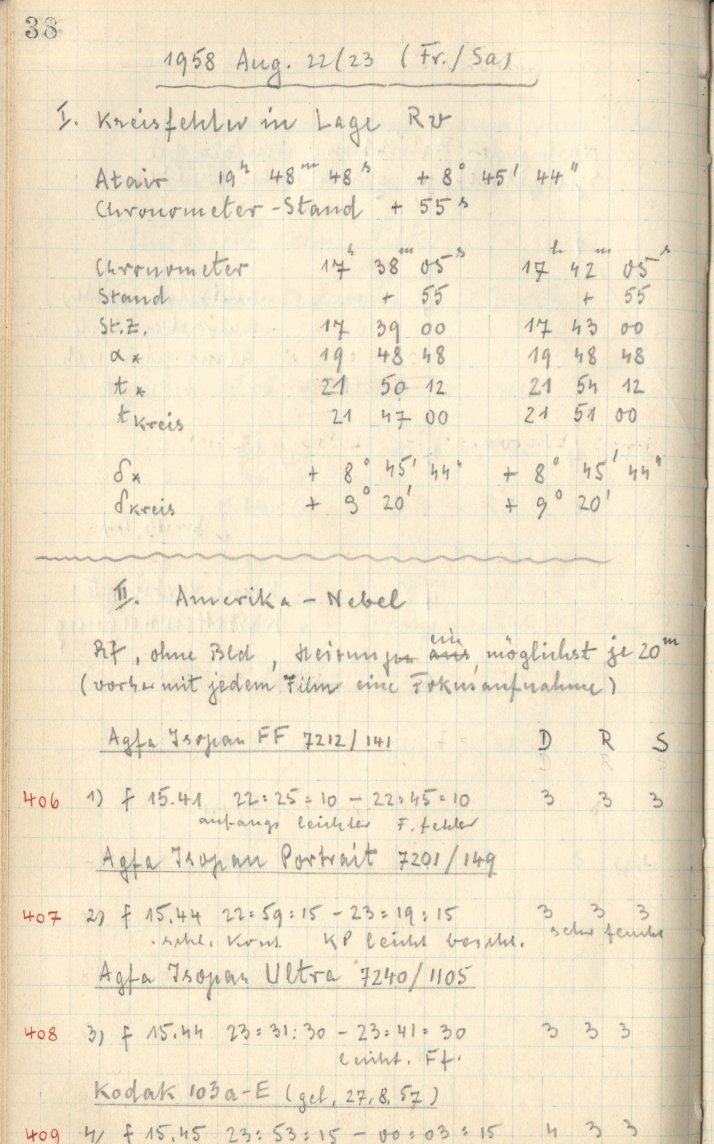 38
1958 Aug. 22/23 (Fr./Sa)
I. Kreisfehler in Lage Rv
Atair 19h 48m 48s + 8° 45' 44"
Chronometer-Stand + 55s
Chronometer 17h 38m 05s 17h 42m 05s
Stand + 55 + 55
St.Z. 17 39 00 17 43 00
α* 19 48 48 19 48 48
t* 21 50 12 21 54 12
tKreis 21 47 00 21 51 00
δ* + 8° 45' 44" + 8° 45' 44"
δKreis + 9° 20' + 9° 20'
II. Amerika-Nebel
Rf, ohne Bld, Heizung ein, möglichst je 20m
(vorher mit jedem Film eine Fokusaufnahme)
Agfa Isopan FF 7212/141 D R S
406 1) f 15.41 22:25:10 - 22:45:10 3 3 3
anfangs leichter F.fehler
Agfa Isopan Portrait 7201/149
407 2) f 15.44 22:59:15 - 23:19:15 3 3 3
schl. Kont KP leicht beschl. sehr feucht
Agfa Isopan Ultra 7240/1105
408 3) f 15.44 23:31:30 - 23:41:30 3 3 3
leicht. Ff.
Kodak 103a-E (gel. 27.8.57)
409 4) f 15.45 23:53:15 - 00:03:15 4 3 3